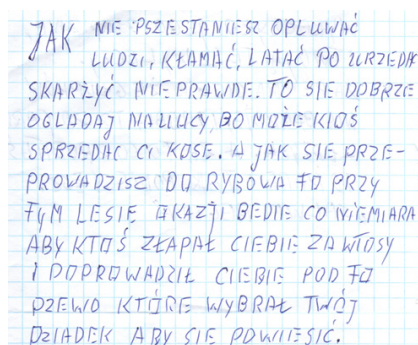 JAK NIE PSZESTANIESZ OPLUWAĆ
LUDZI, KŁAMAĆ, LATAĆ PO URZEDA
SKARŻYĆ NIEPRAWDE. TO SIE DOBRZE
OGLADAJ NA ULICY, BO MOŻE KTOŚ
SPRZEDAC CI KOSE. A JAK SIE PRZE-
PROWADZISZ DO RYBOWA TO PRZY
TYM LESIE OKAZJI BEDIE CO NIEMIARA
ABY KTOŚ ZŁAPAŁ CIEBIE ZA WŁOSY
I DOPROWADZIŁ CIEBIE POD TO
DZEWO KTÓRE WYBRAŁ TWÓJ
DZIADEK ABY SIE POWIESIĆ.